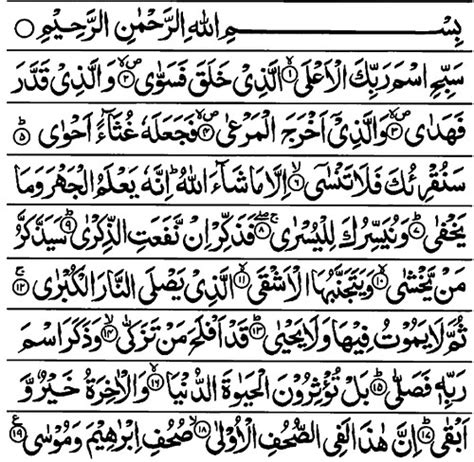 بِسْمِ اللهِ الرَّحْمٰنِ الرَّحِيْمِ ○
سَبِّحِ اسْمَ رَبِّكَ الْاَعْلَى ۙ﴿۱﴾ الَّذِيْ خَلَقَ فَسَوّٰى ۪ۙ﴿۲﴾ وَالَّذِيْ قَدَّرَ
فَهَدٰى ۪ۙ﴿۳﴾ وَالَّذِيْٓ اَخْرَجَ الْمَرْعٰى ۪ۙ﴿۴﴾ فَجَعَلَهٗ غُثَآءً اَحْوٰى ؕ﴿۵﴾
سَنُقْرِئُكَ فَلَا تَنْسٰٓى ۙ﴿۶﴾ اِلَّا مَا شَآءَ اللهُ ؕ اِنَّهٗ يَعْلَمُ الْجَهْرَ وَمَا
يَخْفٰى ؕ﴿۷﴾ وَنُيَسِّرُكَ لِلْيُسْرٰى ۚۖ﴿۸﴾ فَذَكِّرْ اِنْ نَّفَعَتِ الذِّكْرٰى ؕ﴿۹﴾ سَيَذَّكَّرُ
مَنْ يَّخْشٰى ۙ﴿۱۰﴾ وَيَتَجَنَّبُهَا الْاَشْقَى ۙ﴿۱۱﴾ الَّذِيْ يَصْلَى النَّارَ الْكُبْرٰى ۚ﴿۱۲﴾
ثُمَّ لَا يَمُوْتُ فِيْهَا وَلَا يَحْيٰى ؕ﴿۱۳﴾ قَدْ اَفْلَحَ مَنْ تَزَكّٰى ۙ﴿۱۴﴾ وَذَكَرَ اسْمَ
رَبِّهٖ فَصَلّٰى ؕ﴿۱۵﴾ بَلْ تُؤْثِرُوْنَ الْحَيٰوةَ الدُّنْيَا ۖ﴿۱۶﴾ وَالْاٰخِرَةُ خَيْرٌ وَّ
اَبْقٰى ؕ﴿۱۷﴾ اِنَّ هٰذَا لَفِي الصُّحُفِ الْاُوْلٰى ۙ﴿۱۸﴾ صُحُفِ اِبْرٰهِيْمَ وَمُوْسٰى ﴿۱۹﴾